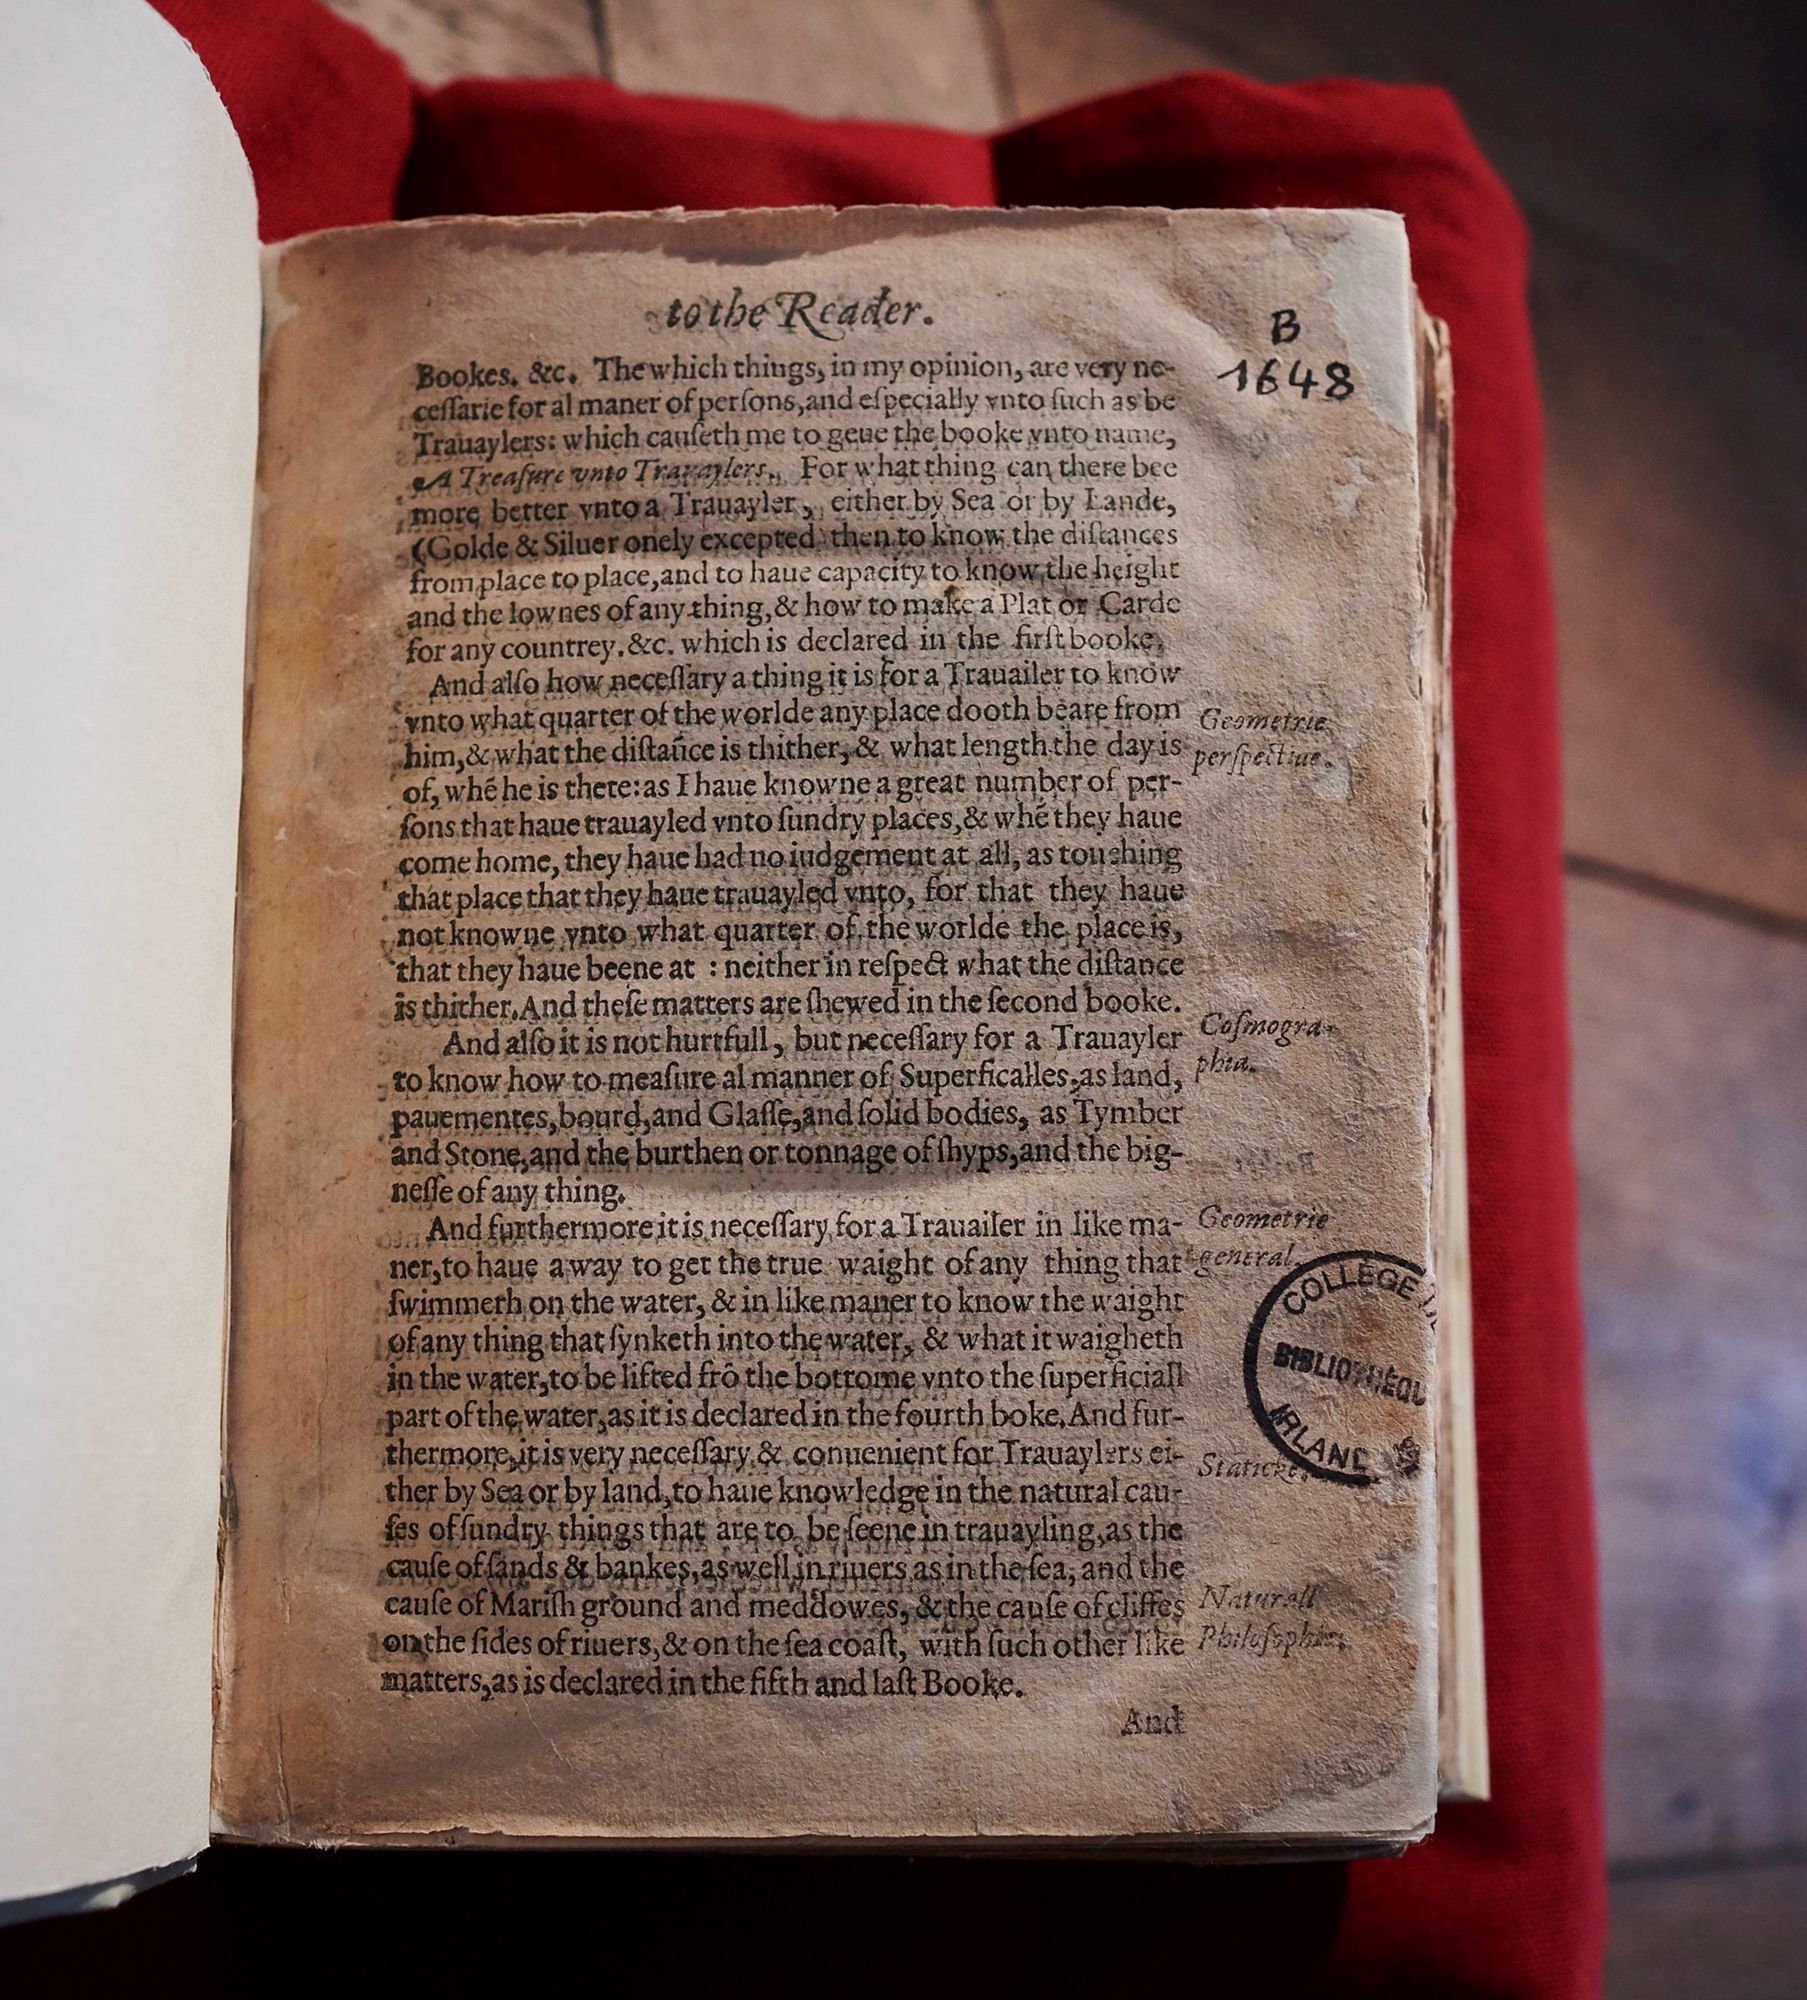 to the Reader.
B
1648
Bookes. &c. The which things, in my opinion, are very ne-
ceſſarie for al maner of perſons, and eſpecially vnto ſuch as be
Trauaylers: which cauſeth me to geue the booke vnto name,
A Treaſure vnto Trauaylers. For what thing can there bee
more better vnto a Trauayler, either by Sea or by Lande,
(Golde & Siluer onely excepted then to know the diſtances
from place to place, and to haue capacity to know the height
and the lownes of any thing, & how to make a Plat or Carde
for any countrey. &c. which is declared in the firſt booke.
And alſo how neceſſary a thing it is for a Trauailer to know
vnto what quarter of the worlde any place dooth beare from
him, & what the diſtaūce is thither, & what length the day is
of, whē he is there: as I haue knowne a great number of per-
ſons that haue trauayled vnto ſundry places, & whē they haue
come home, they haue had no iudgement at all, as touching
that place that they haue trauayled vnto, for that they haue
not knowne vnto what quarter of the worlde the place is,
that they haue beene at : neither in reſpect what the diſtance
is thither. And theſe matters are ſhewed in the ſecond booke.
And alſo it is not hurtfull, but neceſſary for a Trauayler
to know how to meaſure al manner of Superficalles, as land,
pauementes, bourd, and Glaſſe, and ſolid bodies, as Tymber
and Stone, and the burthen or tonnage of ſhyps, and the big-
neſſe of any thing.
And furthermore it is neceſſary for a Trauailer in like ma-
ner, to haue a way to get the true waight of any thing that
ſwimmeth on the water, & in like maner to know the waight
of any thing that ſynketh into the water, & what it waigheth
in the water, to be lifted frō the bottome vnto the ſuperficiall
part of the water, as it is declared in the fourth boke. And fur-
thermore, it is very neceſſary & conuenient for Trauaylers ei-
ther by Sea or by land, to haue knowledge in the natural cau-
ſes of ſundry things that are to be ſeene in trauayling, as the
cauſe of ſands & bankes, as well in riuers as in the ſea, and the
cauſe of Mariſh ground and meddowes, & the cauſe of cliffes
on the ſides of riuers, & on the ſea coaſt, with ſuch other like
matters, as is declared in the fifth and laſt Booke.
And
Geometrie
perſpectiue.
Coſmogra-
phia.
Geometrie
general.
Staticke.
Naturall
Philoſophie.
COLLÈGE
BIBLIOTHÈQU
IRLAND